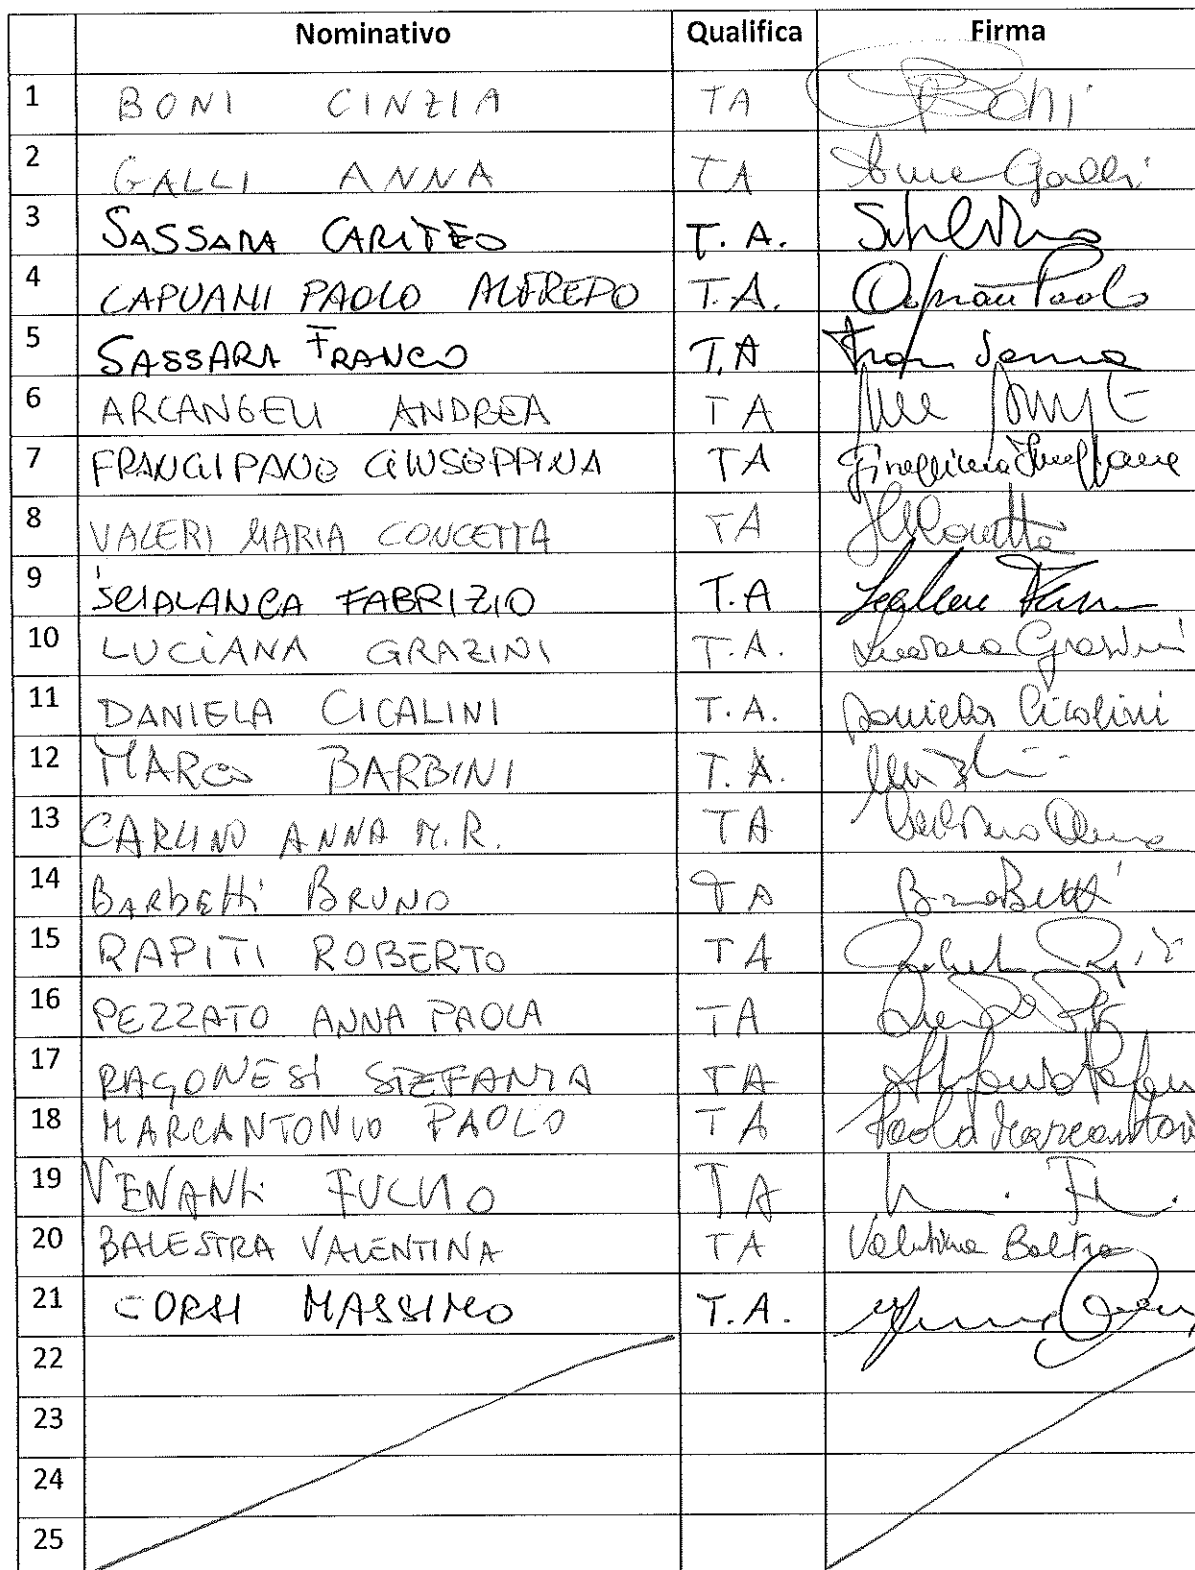 Nominativo Qualifica Firma
1 BONI CINZIA TA Boni
2 GALLI ANNA TA Anna Galli
3 SASSARA CARITEO T. A.
4 CAPUANI PAOLO ALFREDO T.A. Capuani Paolo
5 SASSARA FRANCO T.A
6 ARCANGELI ANDREA TA
7 FRANGIPANE GIUSEPPINA TA Giuseppina Frangipane
8 VALERI MARIA CONCETTA TA
9 SCIALANCA FABRIZIO T.A
10 LUCIANA GRAZINI T.A. Luciana Grazini
11 DANIELA CICALINI T.A. Daniela Cicalini
12 MARCO BARBINI T.A.
13 CARLINO ANNA M.R. TA
14 BARBETTI BRUNO TA
15 RAPITI ROBERTO TA
16 PEZZATO ANNA PAOLA TA
17 RAGONESI STEFANIA TA
18 MARCANTONIO PAOLO TA Paolo Marcantonio
19 VENANTI FULVIO TA
20 BALESTRA VALENTINA TA Valentina Balestra
21 CORSI MASSIMO T.A.
22
23
24
25